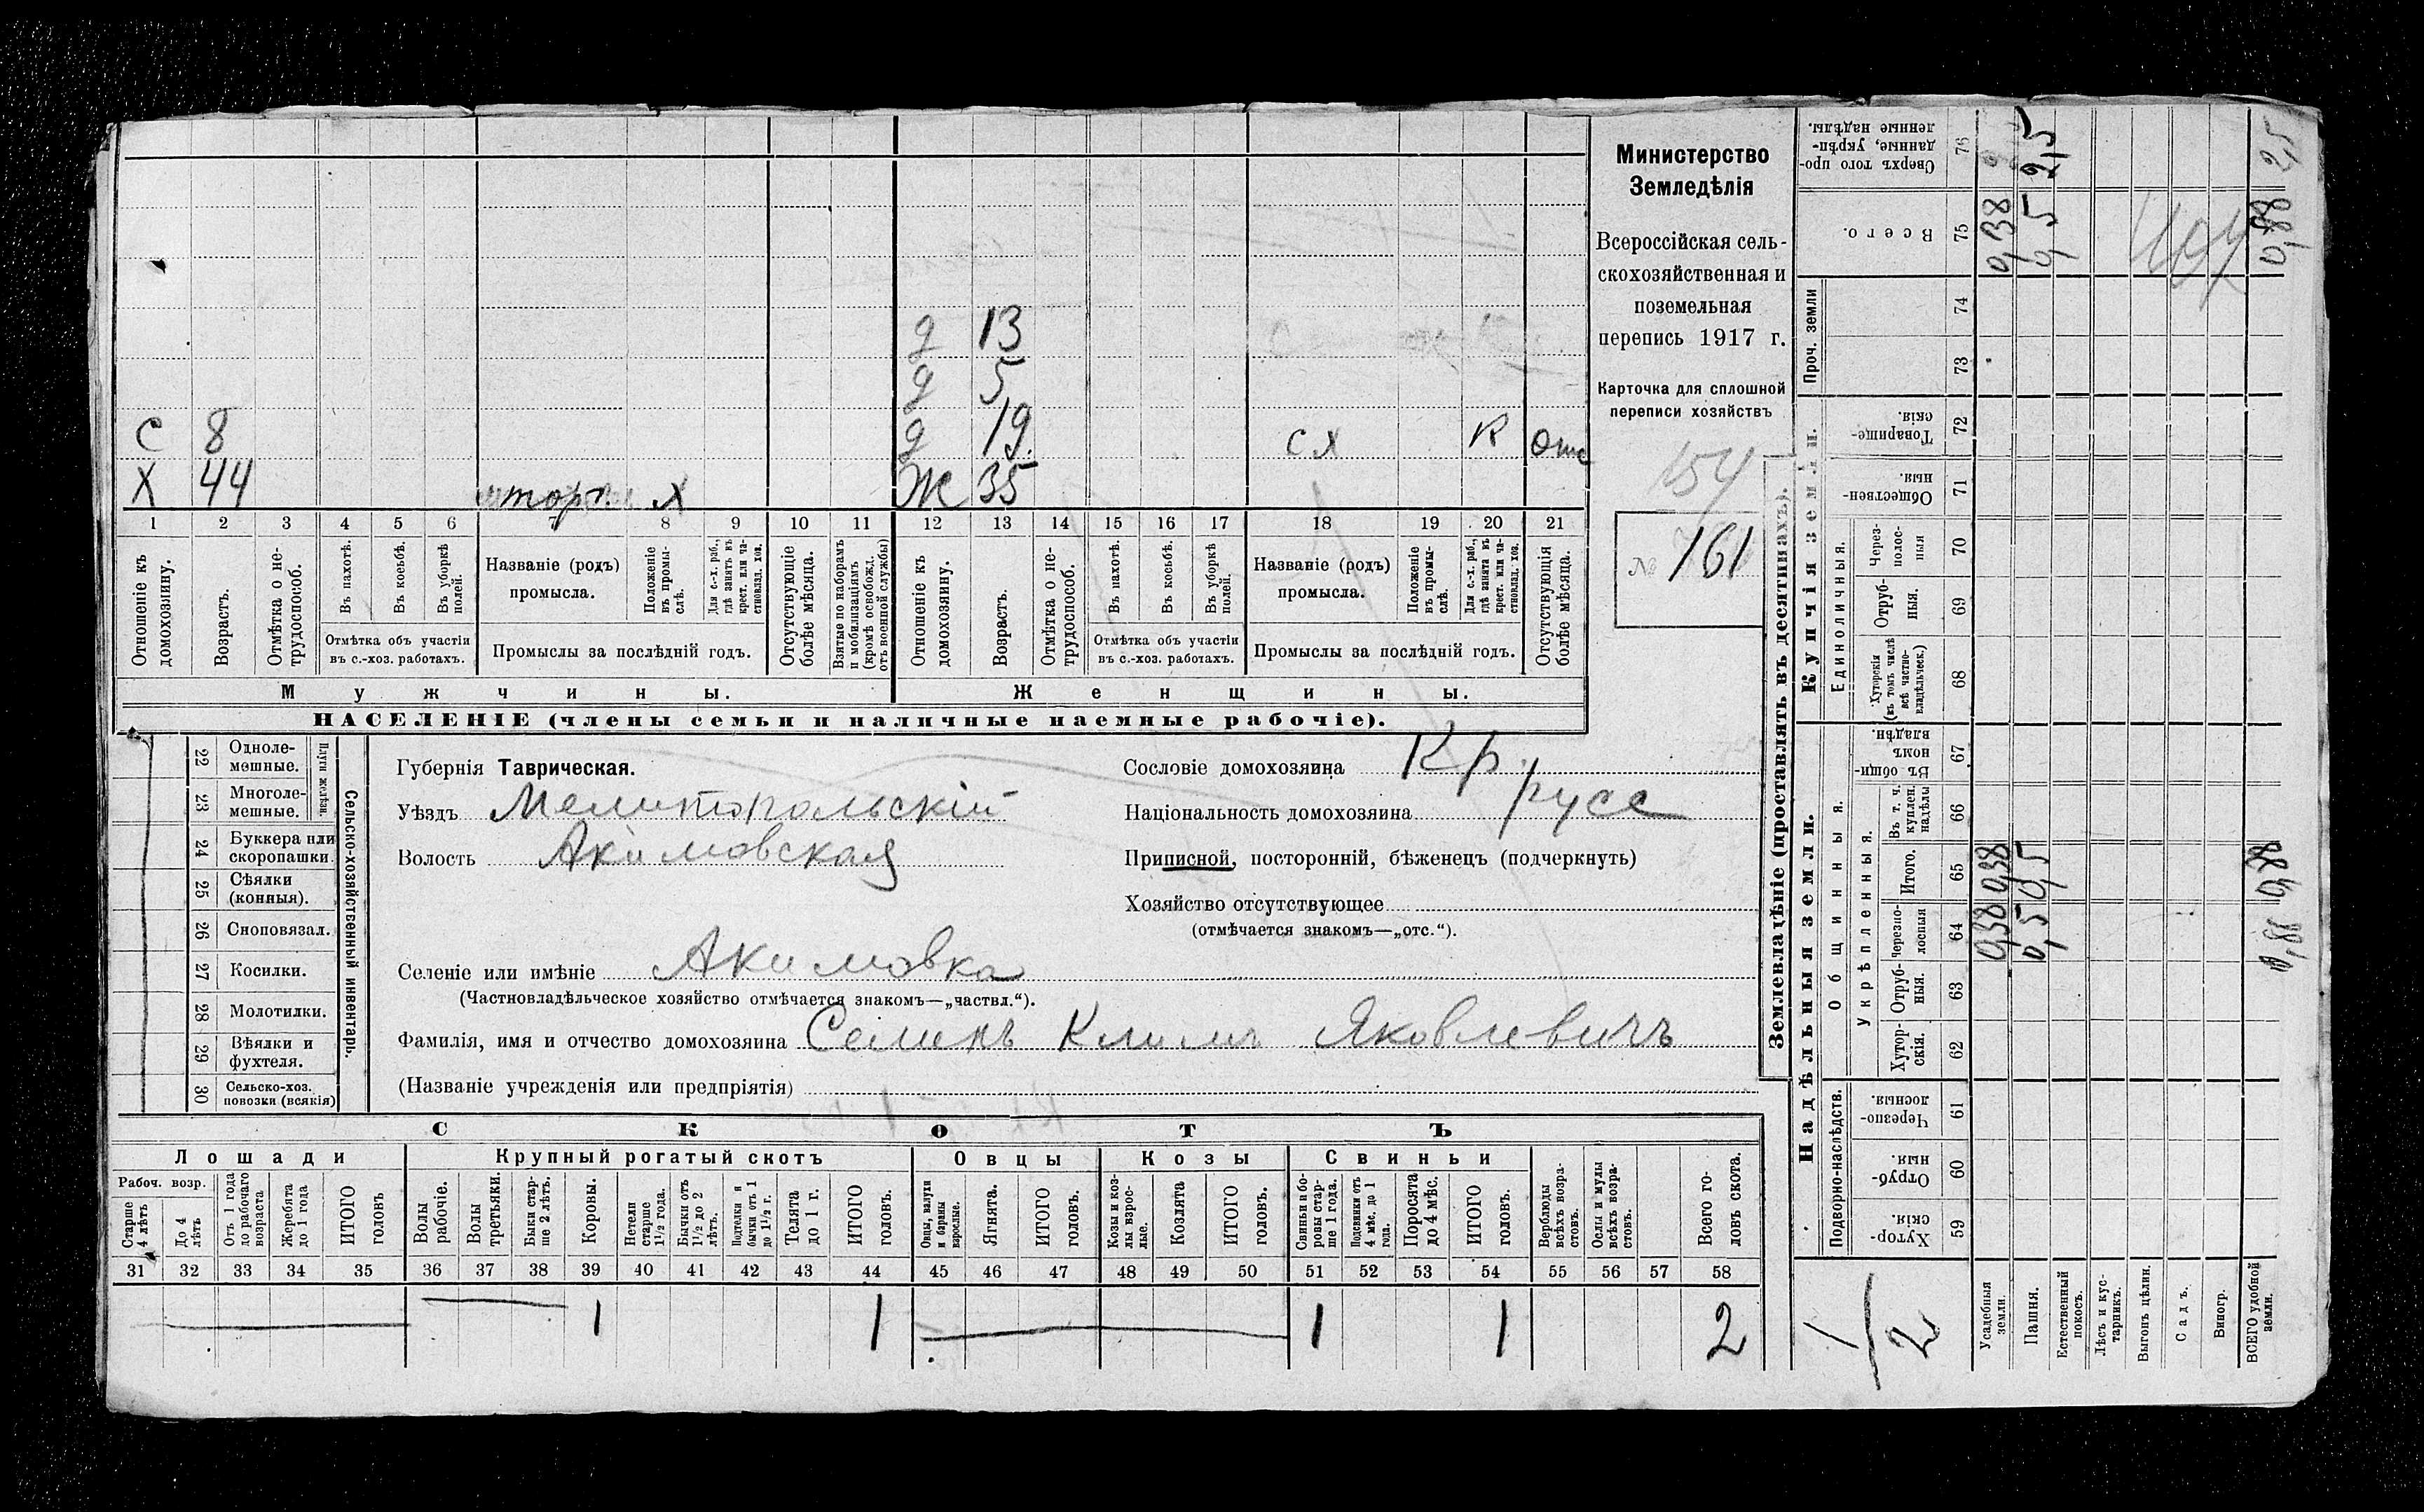 Министерство
Земледѣлія
Всероссійская сель-
скохозяйственная и
поземельная
перепись 1917 г.
Карточка для сплошной
переписи хозяйствъ
154
№ 161
д 13
д 5
С 8 д 19 сх К отс
Х 44 торг. х Ж 35
1 2 3 4 5 6 7 8 9 10 11 12 13 14 15 16 17 18 19 20 21
Отношеніе къ домохозяину.
Возрастъ.
Отмѣтка о не-трудоспособ.
Въ пахотѣ.
Въ косьбѣ.
Въ уборкѣ полей.
Отмѣтка объ участіи
въ с.-хоз. работахъ.
Названіе (родъ)
промысла.
Положеніе въ промы-слѣ.
Для с.-х. раб., гдѣ занятъ въ крест. или ча-стновлад. хоз.
Промыслы за послѣдній годъ.
Отсутствующіе болѣе мѣсяца.
Взятые по наборамъ и мобилизаціямъ (кромѣ освобожд. отъ военной службы)
Отношеніе къ домохозяину.
Возрастъ.
Отмѣтка о не-трудоспособ.
Въ пахотѣ.
Въ косьбѣ.
Въ уборкѣ полей.
Отмѣтка объ участіи
въ с.-хоз. работахъ.
Названіе (родъ)
промысла.
Положеніе въ промы-слѣ.
Для с.-х. раб., гдѣ занята въ крест. или ча-стновлад. хоз.
Промыслы за послѣдній годъ.
Отсутствующія болѣе мѣсяца.
Мужчины. Женщины.
НАСЕЛЕНІЕ (члены семьи и наличные наемные рабочіе).
Сельско-хозяйственный инвентарь.
Плуги желѣзн.
22 Одноле-мешные.
23 Многоле-мешные.
24 Буккера или скоропашки.
25 Сѣялки (конныя).
26 Сноповязал.
27 Косилки.
28 Молотилки.
29 Вѣялки и фухтеля.
30 Сельско-хоз. повозки (всякія)
Губернія Таврическая.
Уѣздъ Мелитопольскій
Волость Акимовская
Селеніе или имѣніе Акимовка
(Частновладѣльческое хозяйство отмѣчается знакомъ—„частвл.“).
Фамилія, имя и отчество домохозяина Семинъ Климъ Яковлевичъ
(Названіе учрежденія или предпріятія)
Сословіе домохозяина Кр.
Національность домохозяина русс
Приписной, посторонній, бѣженецъ (подчеркнуть)
Хозяйство отсутствующее
(отмѣчается знакомъ—„отс.“).
СКОТЪ
Лошади Крупный рогатый скотъ Овцы Козы Свиньи
Рабоч. возр.
Старше 4 лѣтъ
До 4 лѣтъ
Отъ 1 года до рабочаго возраста
Жеребята до 1 года
ИТОГО головъ
Волы рабочіе.
Волы третьяки.
Быки стар-ше 2 лѣтъ.
Коровы.
Нетели старше 1½ года.
Бычки отъ 1½ до 2 лѣтъ.
Подтелки и бычки отъ 1 до 1½ г.
Телята до 1 г.
ИТОГО головъ.
Овцы, валухи и бараны взрослые.
Ягнята.
ИТОГО головъ.
Козы и коз-лы взрос-лые.
Козлята
ИТОГО головъ.
Свиньи и бо-ровы стар-ше 1 года.
Подсвинки отъ 4 мѣс. до 1 года.
Поросята до 4 мѣс.
ИТОГО головъ.
Верблюды всѣхъ возра-стовъ.
Ослы и мулы всѣхъ возра-стовъ.
Всего го-ловъ скота.
31 32 33 34 35 36 37 38 39 40 41 42 43 44 45 46 47 48 49 50 51 52 53 54 55 56 57 58
1 1 1 1 2
Землевладѣніе (проставлять въ десятинахъ).
Надѣльныя земли. Купчія земли. Проч. земли
Подворно-наслѣдств. Общинныя. Укрѣпленныя. Единоличныя.
59 Хутор-скія.
60 Отруб-ныя.
61 Черезпо-лосныя.
62 Хутор-скія.
63 Отруб-ныя.
64 Черезпо-лосныя
65 Итого.
66 Въ т. ч. куплен. надѣлы
67 Въ общи-номъ владѣн.
68 Хуторскія (въ томъ числѣ всѣ частно-владѣльческ.)
69 Отруб-ныя.
70 Через-полос-ныя
71 Обществен-ныя.
72 Товарище-скія.
73
74
75 Всего.
76 Сверхъ того про-данные, укрѣп-ленные надѣлы.
1/2
Усадебныя земли. 0,38 0,38 0,38
Пашня. 0,5 0,5 0,5 2,5
Естественный покосъ.
Лѣсъ и кус-тарникъ.
Выгонъ цѣлин.
Садъ.
Виногр.
ВСЕГО удобной земли. 0,88 0,88 0,88 2,5